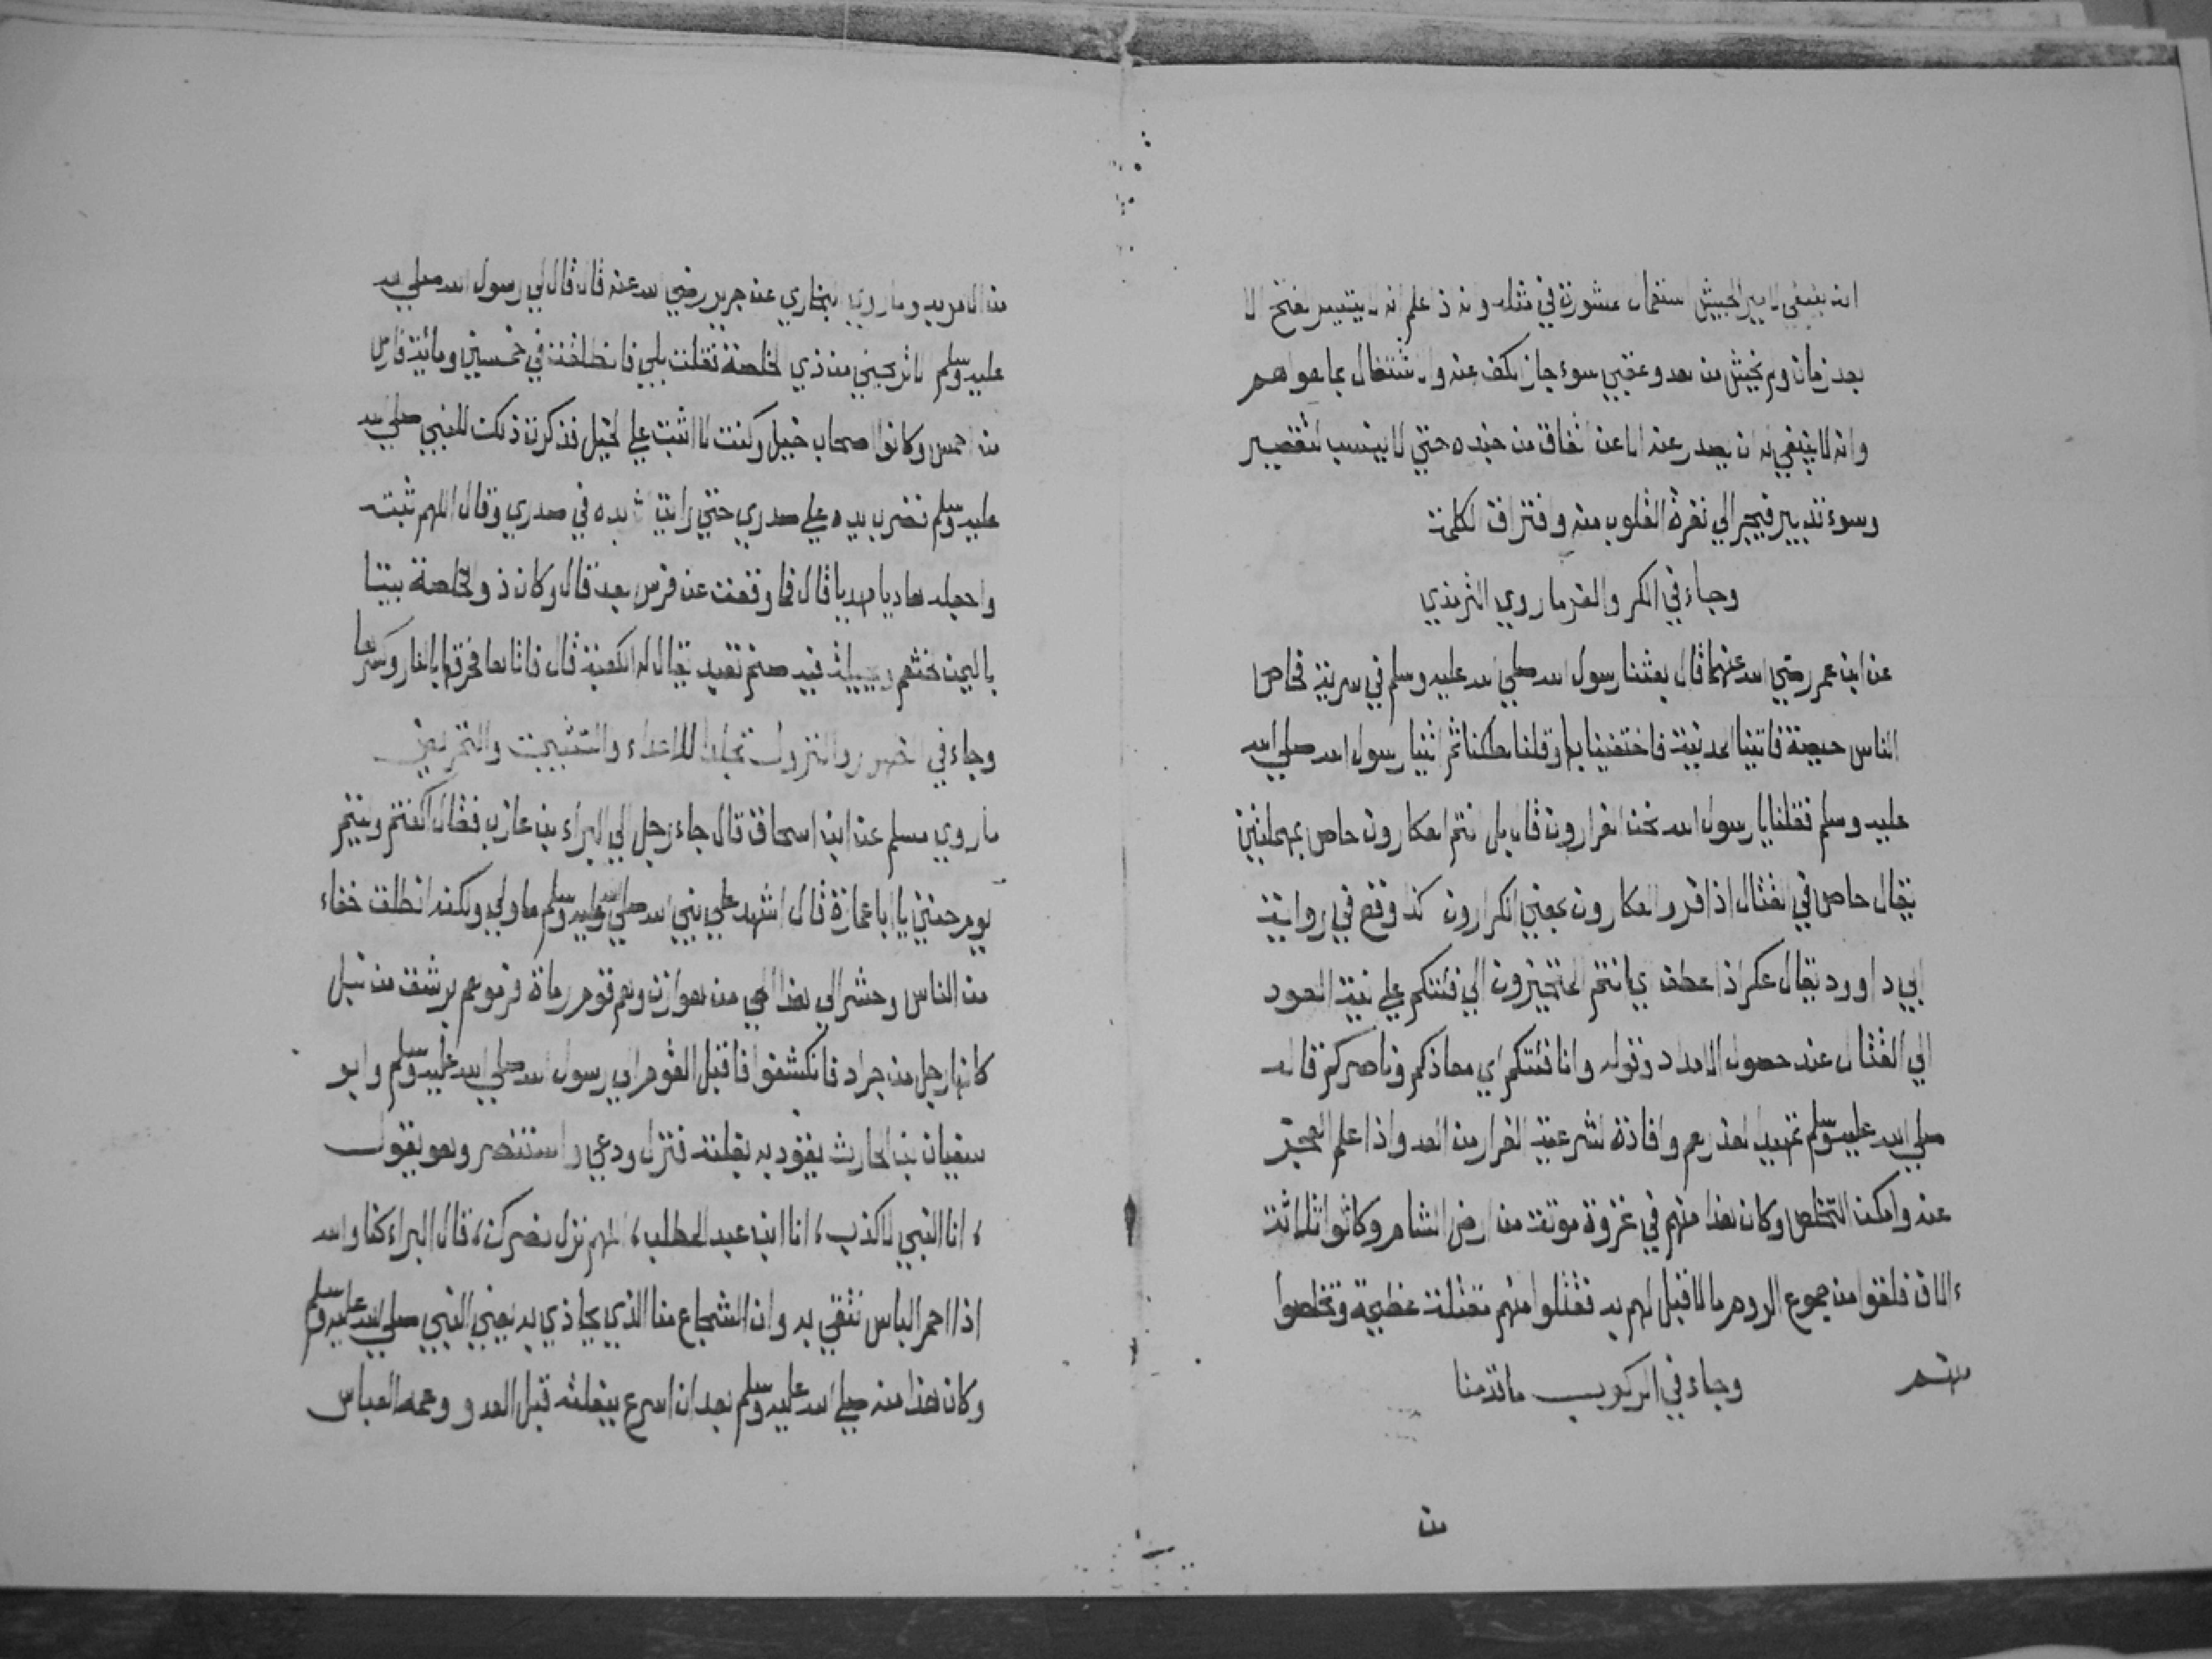 انه ينبغي لامير الجيش استعمال مشورة في مثله وانه اذا علم انه لا يتيسر الفتح الا
بعد زمان ولم يخش من العدو عقبى سوء جاز الكف عنه والاشتغال بما هو اهم
وانه لا ينبغي له ان يصدر عنه الا عن اتفاق من جنده حتي لا ينسب لتقصير
وسوء تدبير فيجر الي نفرة القلوب منه وافتراق الكلمة
وجاء في الكر والفر ما روي الترمذي
عن ابن عمر رضي الله عنهما قال بعثنا رسول الله صلي الله عليه وسلم في سرية فحاص
الناس حيصة فاتينا المدينة فاختفينا بها وقلنا هلكنا ثم اتينا رسول الله صلي الله
عليه وسلم فقلنا يا رسول الله نحن الفرارون قال بل انتم العكارون حاص بمهملتين
يقال حاص في القتال اذا فر والعكارون بمعني الكرارون كذا وقع في رواية
ابي داوود يقال عكر اذا عطف اي انتم المتحيزون الي فئتكم علي نية العود
الي القتال عند حصول الامداد وقوله وانا فئتكم اي معاذكم وناصركم قاله
صلي الله عليه وسلم تمهيدا لعذرهم وافادة لشرعية الفرار من العدو اذا علم العجز
عنه وامكن التخلص وكان هذا منهم في غزوة موتة من ارض الشام وكانوا ثلاثة
ءالاف فلقوا من جموع الروم ما لا قبل لهم به فقتلوا منهم مقتلة عظيمة وتخلصوا
منهم وجاء في الركوب ما قدمنا
من
من التامريد وما روي البخاري عن جرير رضي الله عنه قال قال لي رسول الله صلي الله
عليه وسلم الا تريحني من ذي الخلصة فقلت بلي فانطلقت في خمسين ومائة فارس
من احمس وكانوا اصحاب خيل وكنت لا اثبت علي الخيل فذكرت ذلك للنبي صلي الله
عليه وسلم فضرب يده علي صدري حتي رايت اثر يده في صدري وقال اللهم ثبته
واجعله هاديا مهديا قال فما وقعت عن فرس بعد قال وكان ذو الخلصة بيتا
باليمن لخثعم وبجيلة فيه صنم تعبد يقال له الكعبة قال فاتاها فحرقها بالنار وكسرها
وجاء في الحضور والنزول تجلدا للاعداء والتثبيت والتحريض
ما روي مسلم عن ابن اسحاق قال جاء رجل الي البراء بن عازب فقال اكنتم وليتم
يوم حنين يا ابا عمارة قال اشهد علي نبي الله صلي الله عليه وسلم ما ولي ولكنه انطلق خفاء
من الناس وحشر الي هذا الحي من هوازن وهم قوم رماة فرموهم برشق من نبل
كانها رجل من جراد فانكشفوا فاقبل القوم الي رسول الله صلي الله عليه وسلم وابو
سفيان بن الحارث يقود به بغلته فنزل ودعي واستنصر وهو يقول
، انا النبي لا كذب ، انا ابن عبد المطلب ، اللهم نزل نصرك ، قال البراء كنا والله
اذا احمر الباس نتقي به وان الشجاع منا الذي يحاذي به يعني النبي صلي الله عليه وسلم
وكان هذا منه صلي الله عليه وسلم بعد ان اسرع ببغلته قبل العدو وعمه العباس